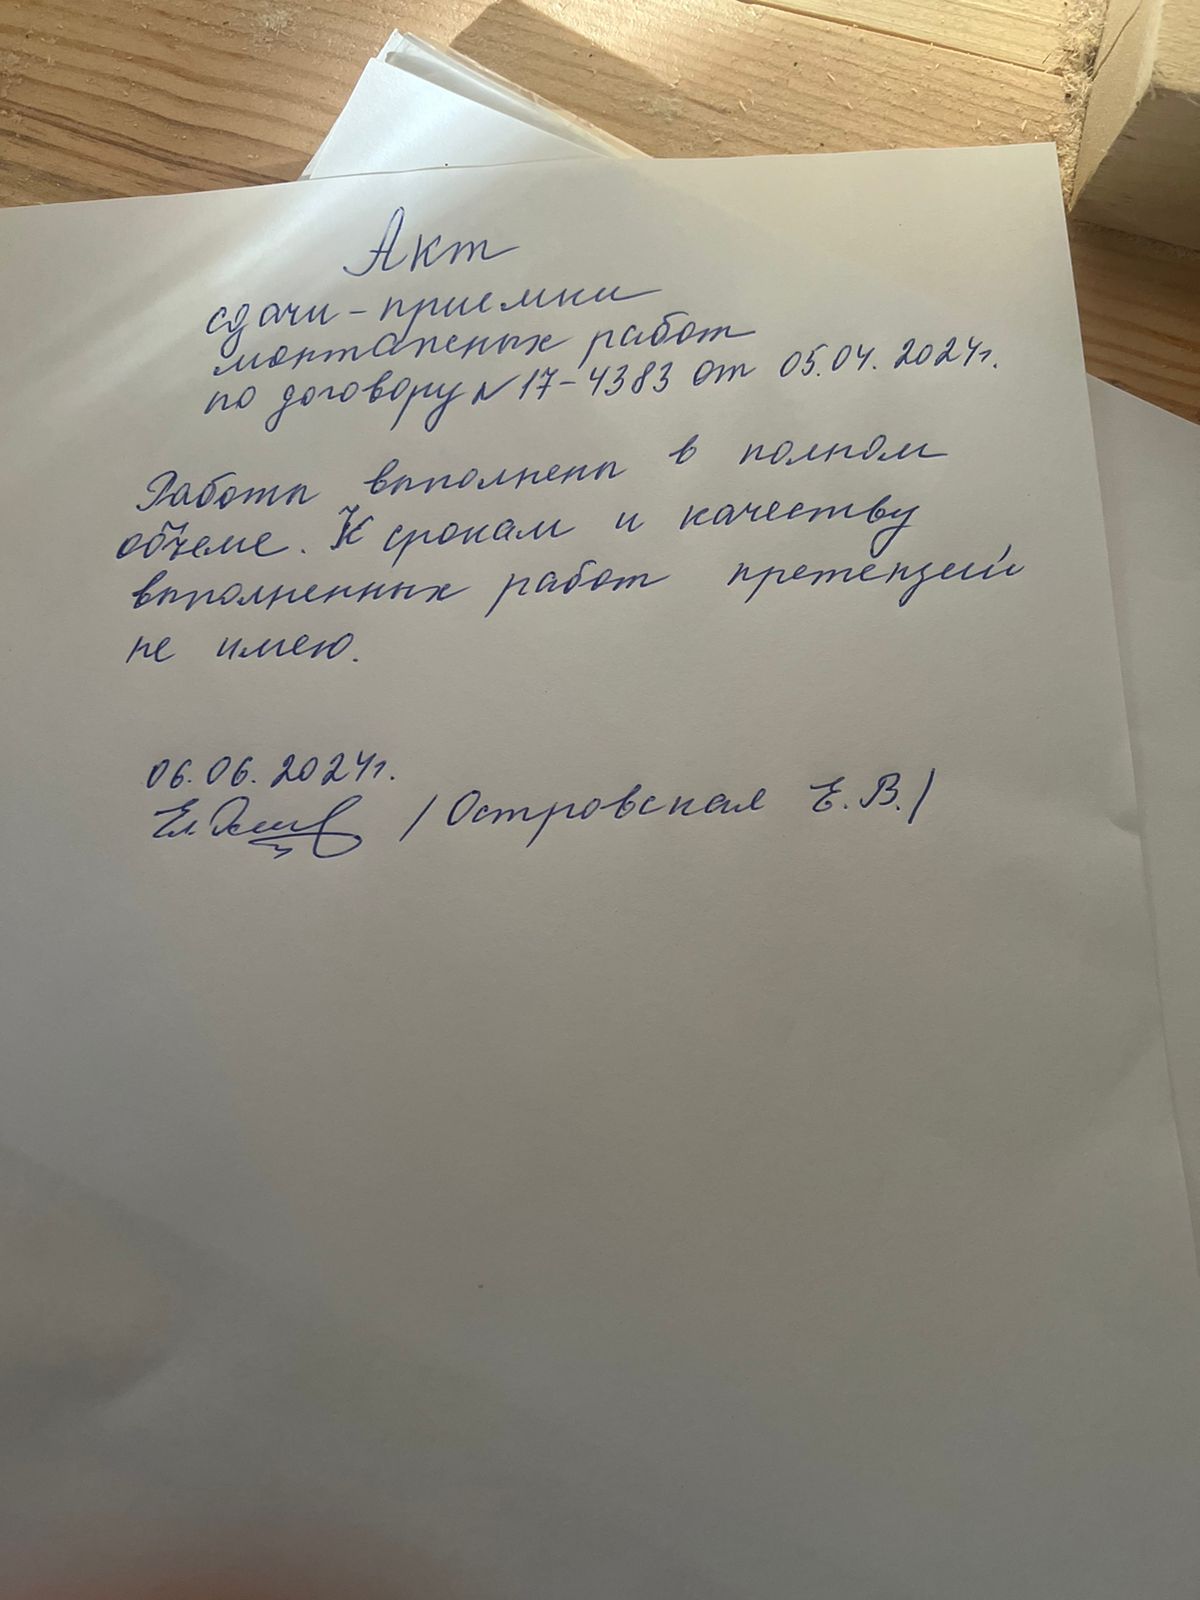 Акт
сдачи-приемки
монтажных работ
по договору N 17-4383 от 05.04.2024г.
Работы выполнены в полном
объеме. К срокам и качеству
выполненных работ претензий
не имею.
06.06.2024г.
/Островская Е.В./